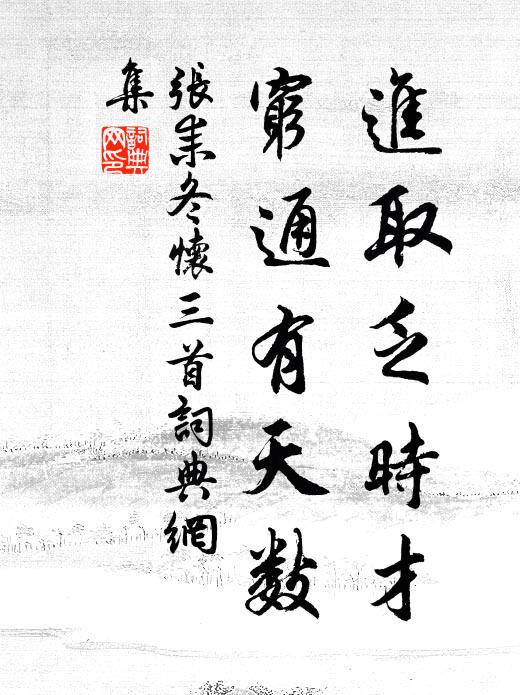 進取乏時才
窮通有天數
張耒冬懷三首詞典網
集
詞典網印